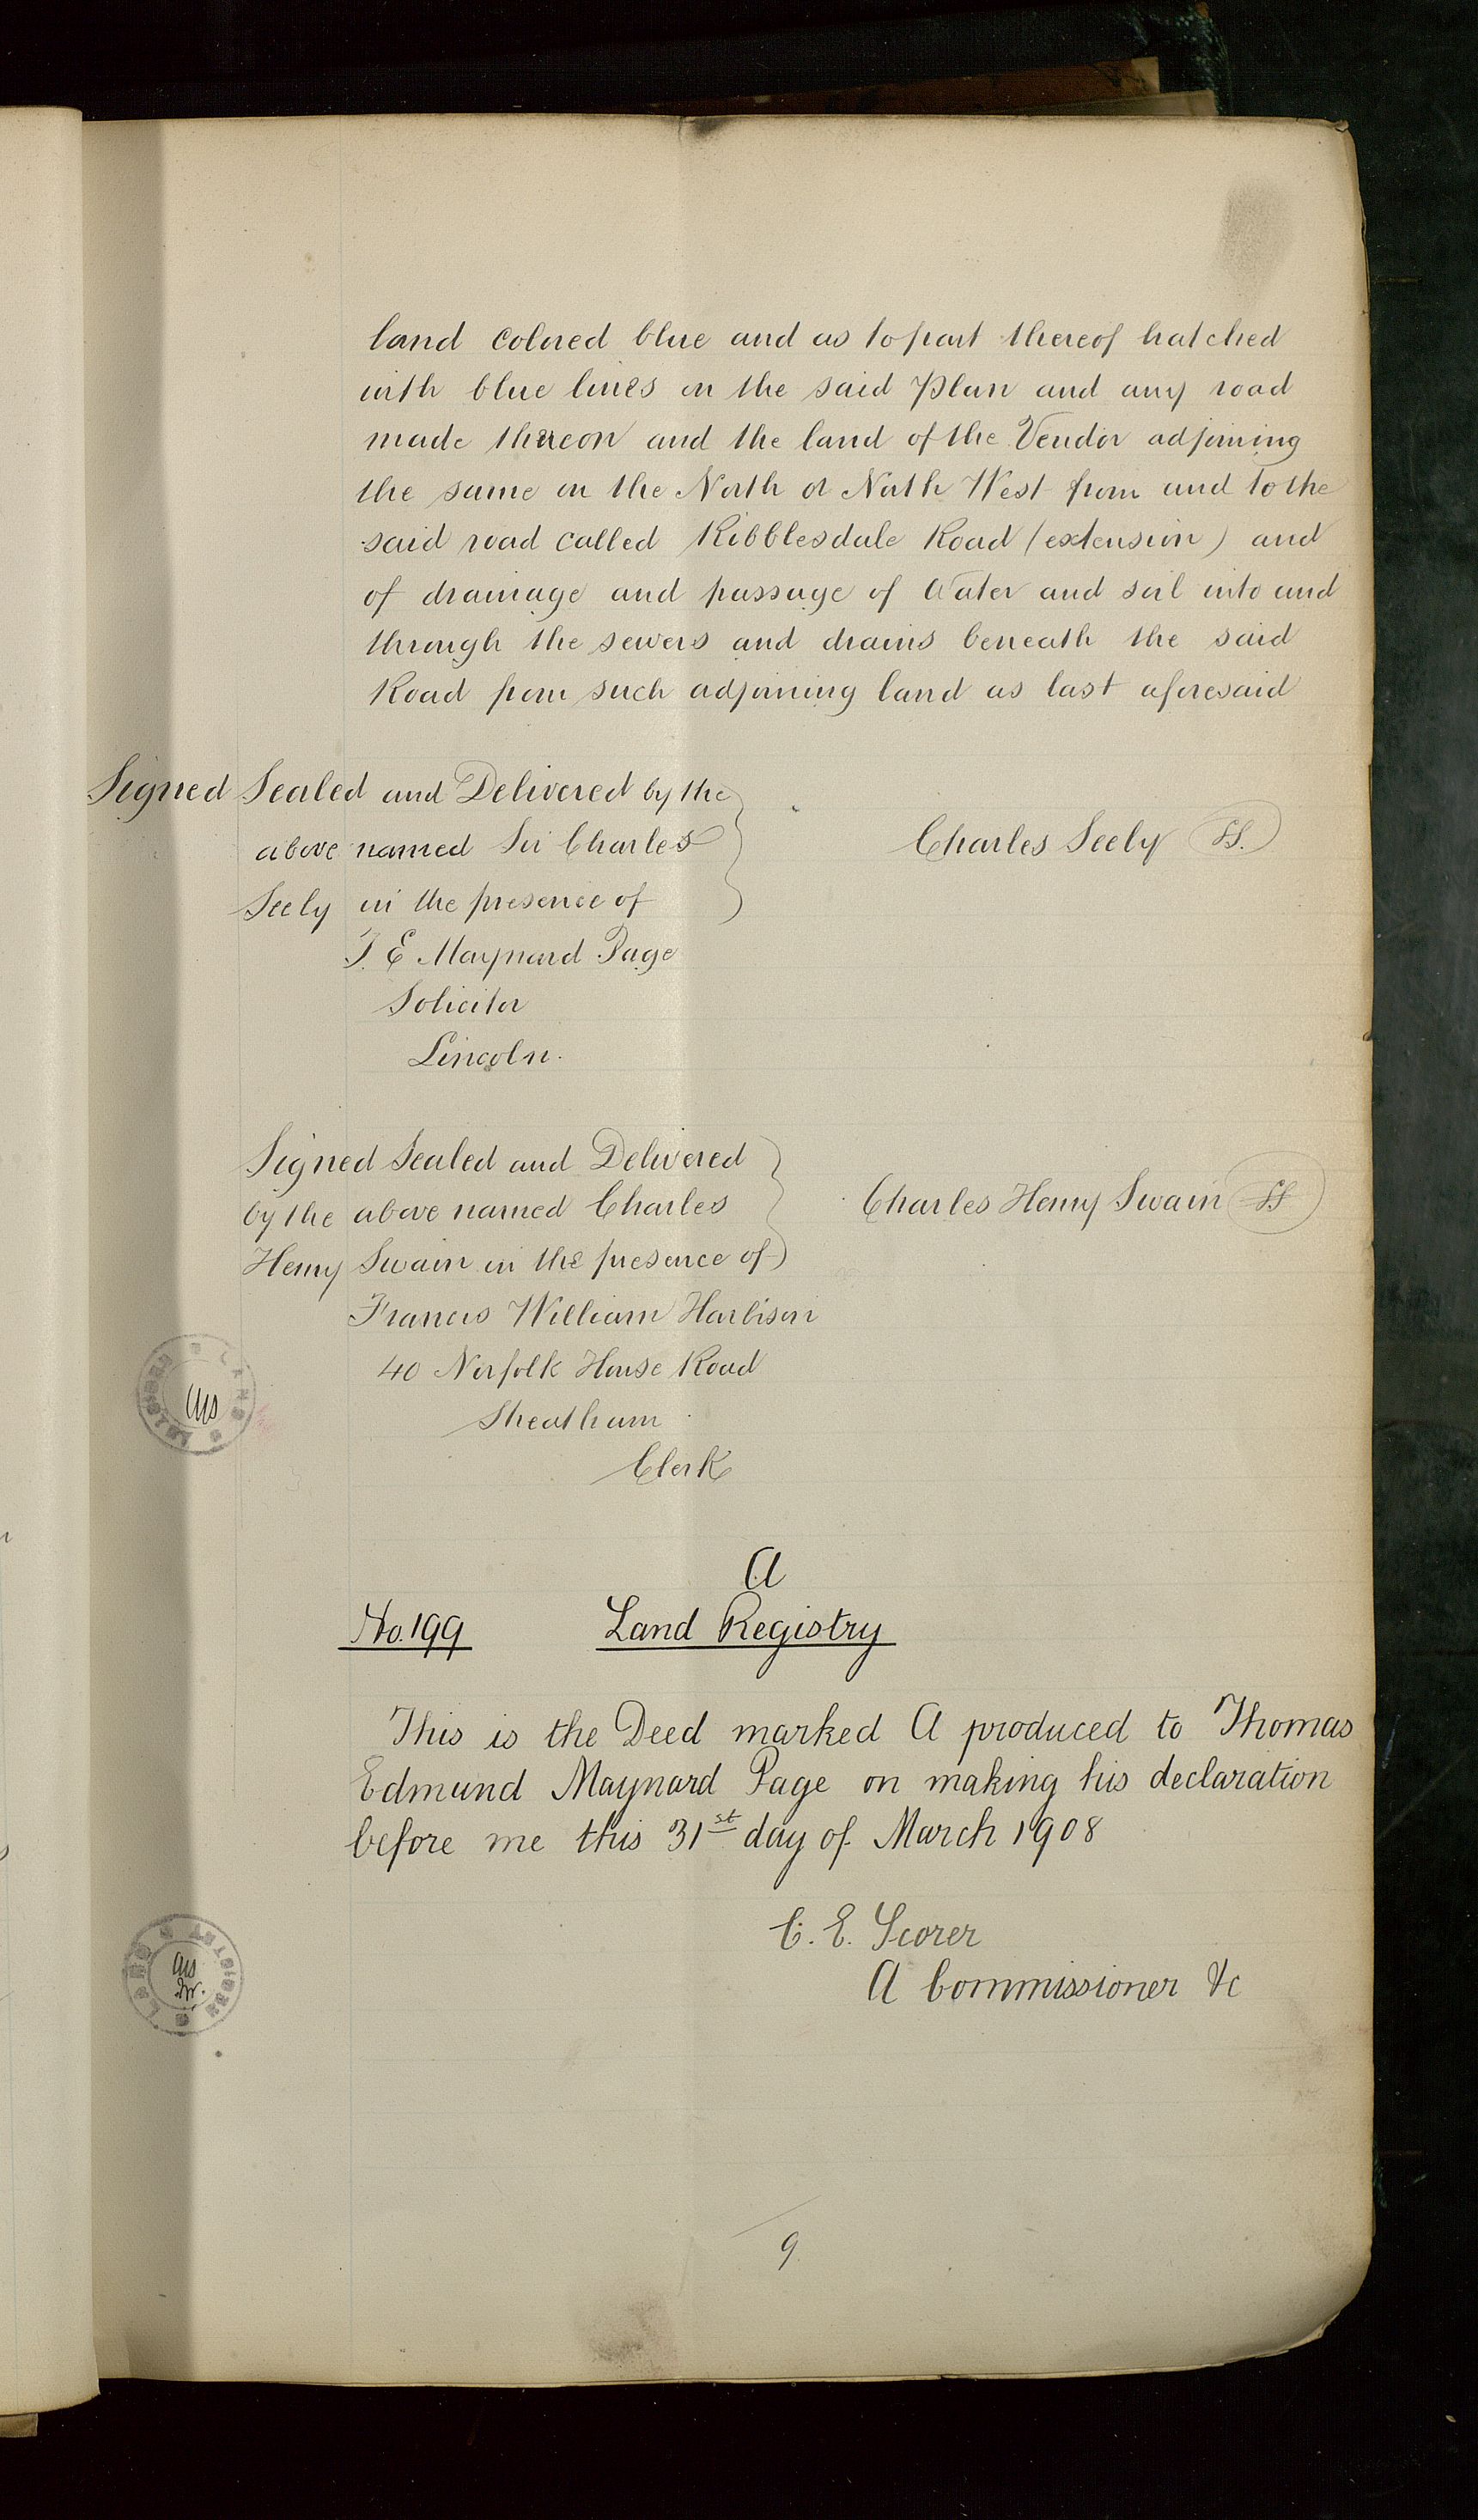 land colored blue and as to part thereof hatched
with blue lines on the said Plan and any road
made thereon and the land of the Vendor adjoining
the same on the North or North West from and to the
said road called Ribblesdale Road (extension) and
of drainage and passage of Water and soil into and
through the sewers and drains beneath the said
Road from such adjoining land as last aforesaid
Signed Sealed and Delivered by the
above named Sir Charles
Charles Seely LS.
Seely in the presence of
T. E Maynard Page
Solicitor
Lincoln.
Signed Sealed and Delivered
by the above named Charles
Charles Henry Swain LS
Henry Swain in the presence of
Francis William Harbison
40 Norfolk House Road
Streatham
Clerk
A
No. 199 Land Registry
This is the Deed marked A produced to Thomas
Edmund Maynard Page on making his declaration
before me this 31st day of March 1908
C. E. Scorer
A Commissioner &c
LAND REGISTRY
LAND REGISTRY
9